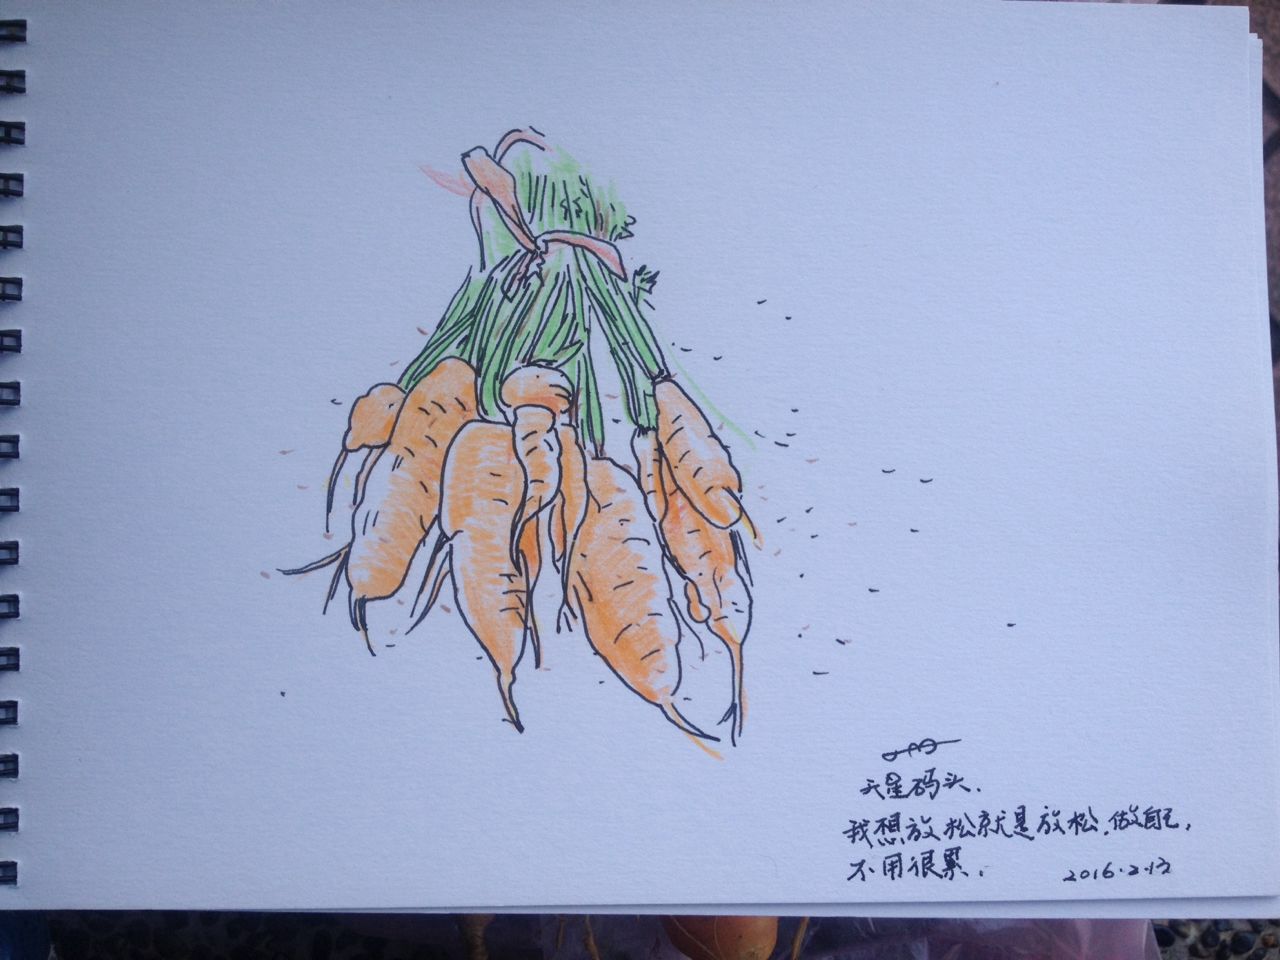 天星码头.
我想放松就是放松.做自己,
不用很累.
2016.2.13